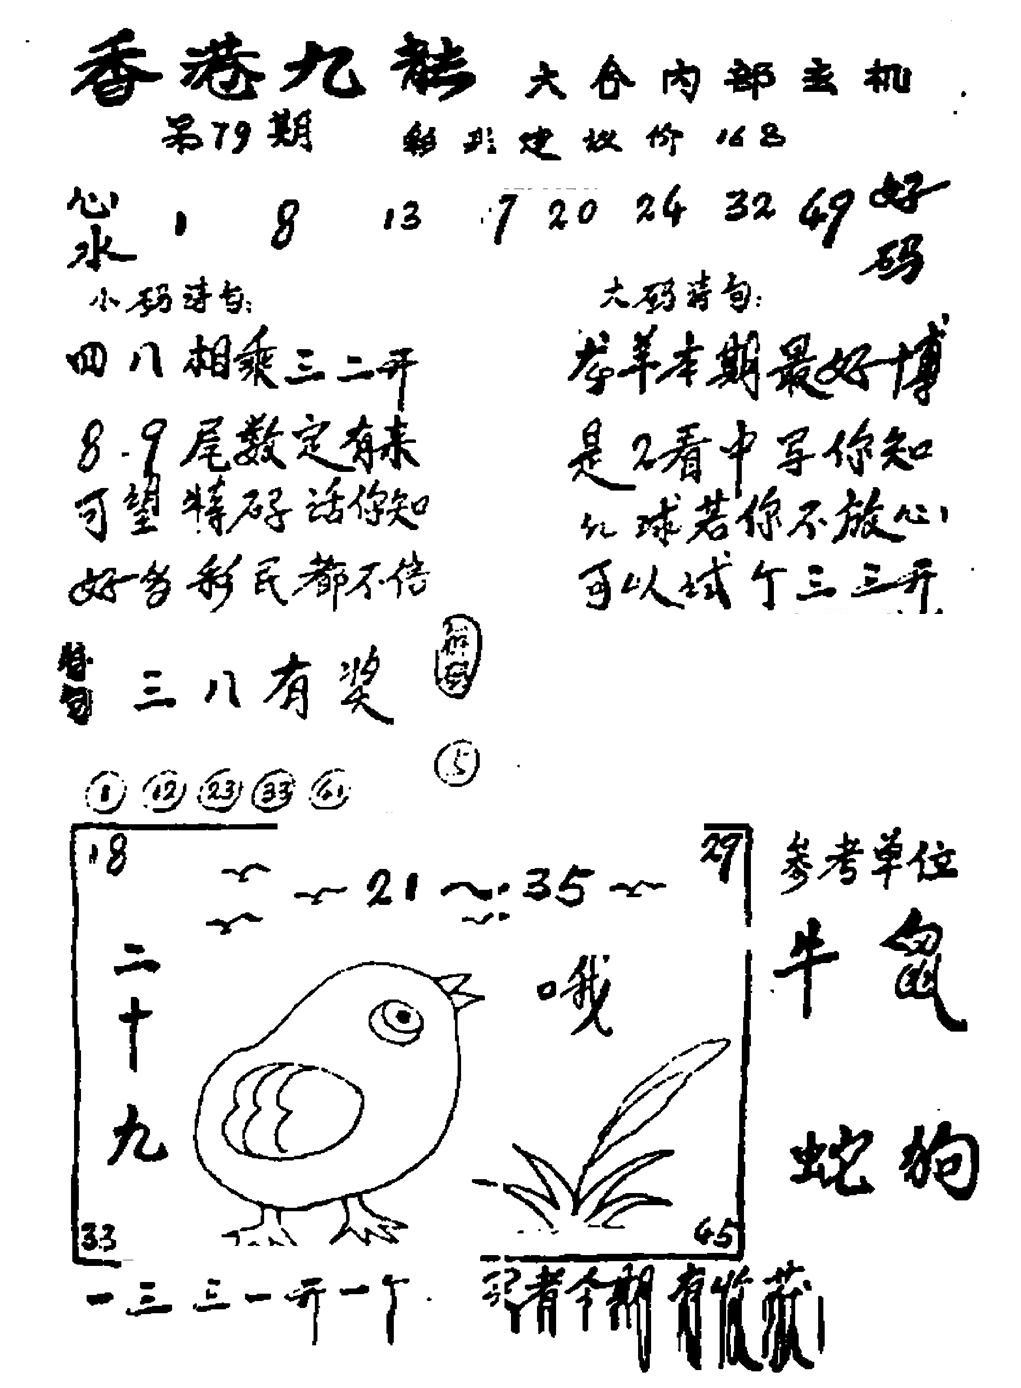 香港九龙 六合内部玄机
第79期 彩形建议价168
心水 1 8 13 7 20 24 32 49 好码
小码诗句: 大码诗句:
四八相乘三二开
8.9尾数定有来
可望特码话你知
好多彩民都不信
羊本期最好博
是2看中写你知
球若你不放心
可以试个三三开
特 三八有奖
5
1 12 23 33 41
18 29
21 ~ 35
二十九
哦
33 45
参考单位
牛 鼠
蛇 狗
一三三一开一个
者今期有收获